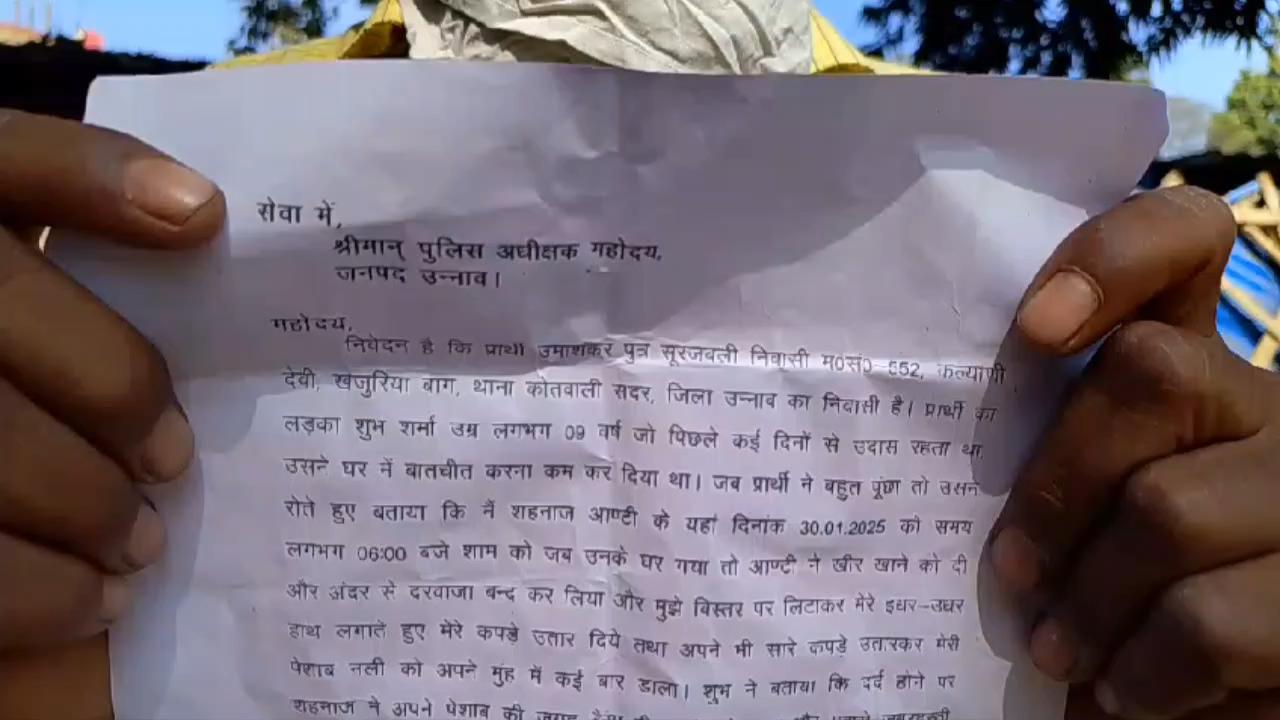 सेवा में,
श्रीमान् पुलिस अधीक्षक महोदय,
जनपद उन्नाव।
महोदय,
निवेदन है कि प्रार्थी उमाशंकर पुत्र सूरजबली निवासी म0सं0-552, कल्याणी
देवी, खजुरिया बाग, थाना कोतवाली सदर, जिला उन्नाव का निवासी है। प्रार्थी का
लड़का शुभ शर्मा उम्र लगभग 09 वर्ष जो पिछले कई दिनों से उदास रहता था
उसने घर में बातचीत करना कम कर दिया था। जब प्रार्थी ने बहुत पूंछा तो उसने
रोते हुए बताया कि मैं शहनाज आण्टी के यहां दिनांक 30.01.2025 को समय
लगभग 06:00 बजे शाम को जब उनके घर गया तो आण्टी ने खीर खाने को दी
और अंदर से दरवाजा बन्द कर लिया और मुझे बिस्तर पर लिटाकर मेरे इधर-उधर
हाथ लगाते हुए मेरे कपड़े उतार दिये तथा अपने भी सारे कपड़े उतारकर मेरी
पेशाब नली को अपने मुंह में कई बार डाला। शुभ ने बताया कि दर्द होने पर
शहनाज ने अपने पेशाब की जगह